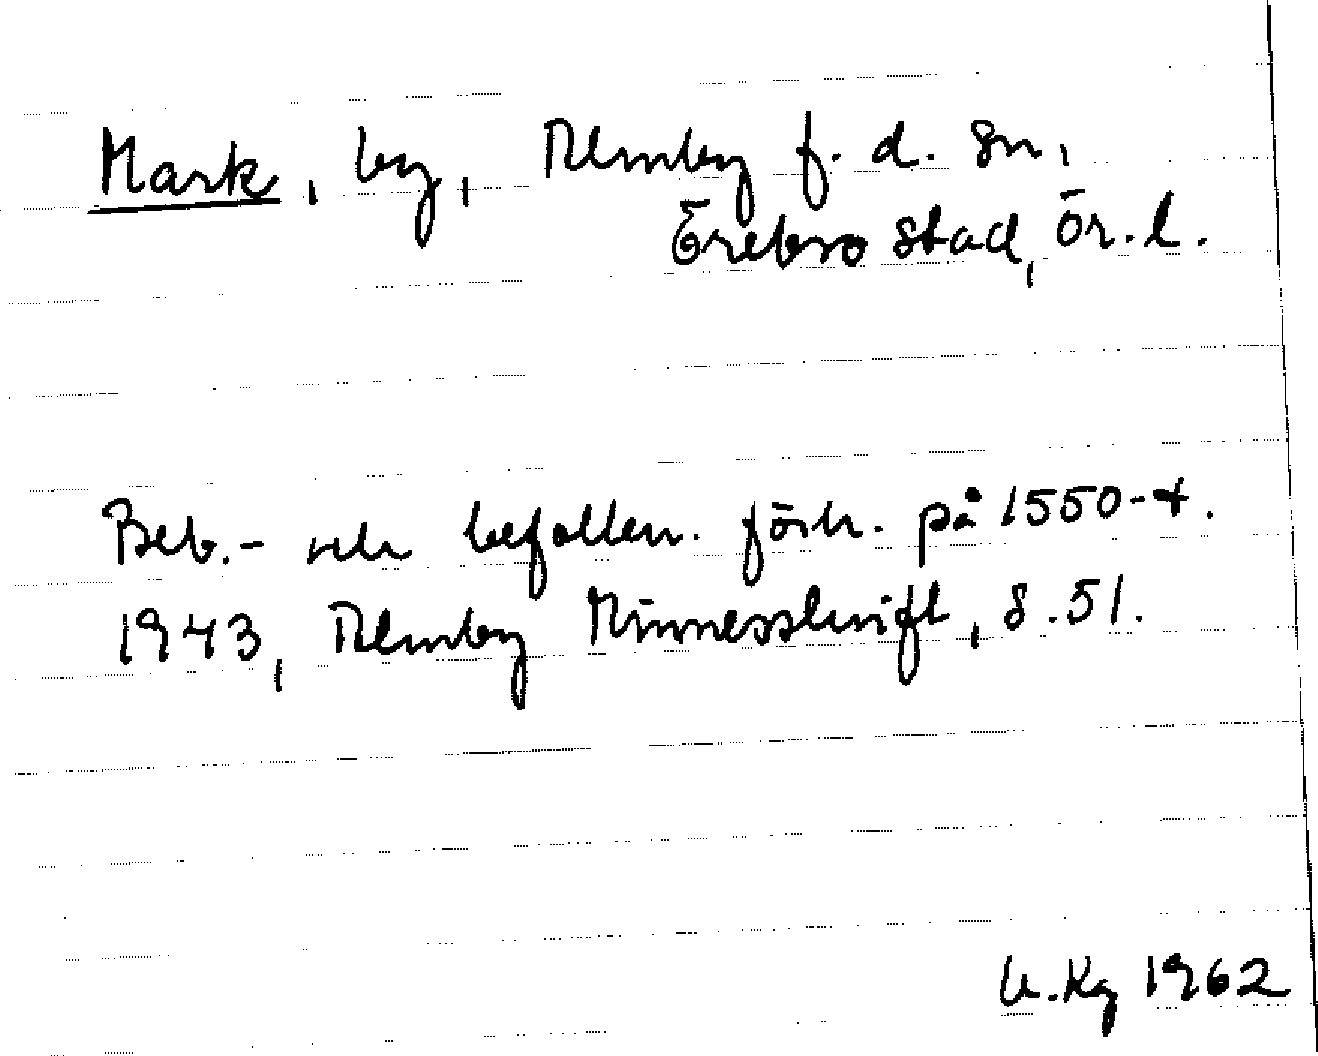 Mark, by, Almby f. d. sn,
Örebro stad, Ör. l.
Beb.- och befolkn. förh. på 1550-t.
1943, Almby Minnesskrift, s. 51.
U. Kg 1962